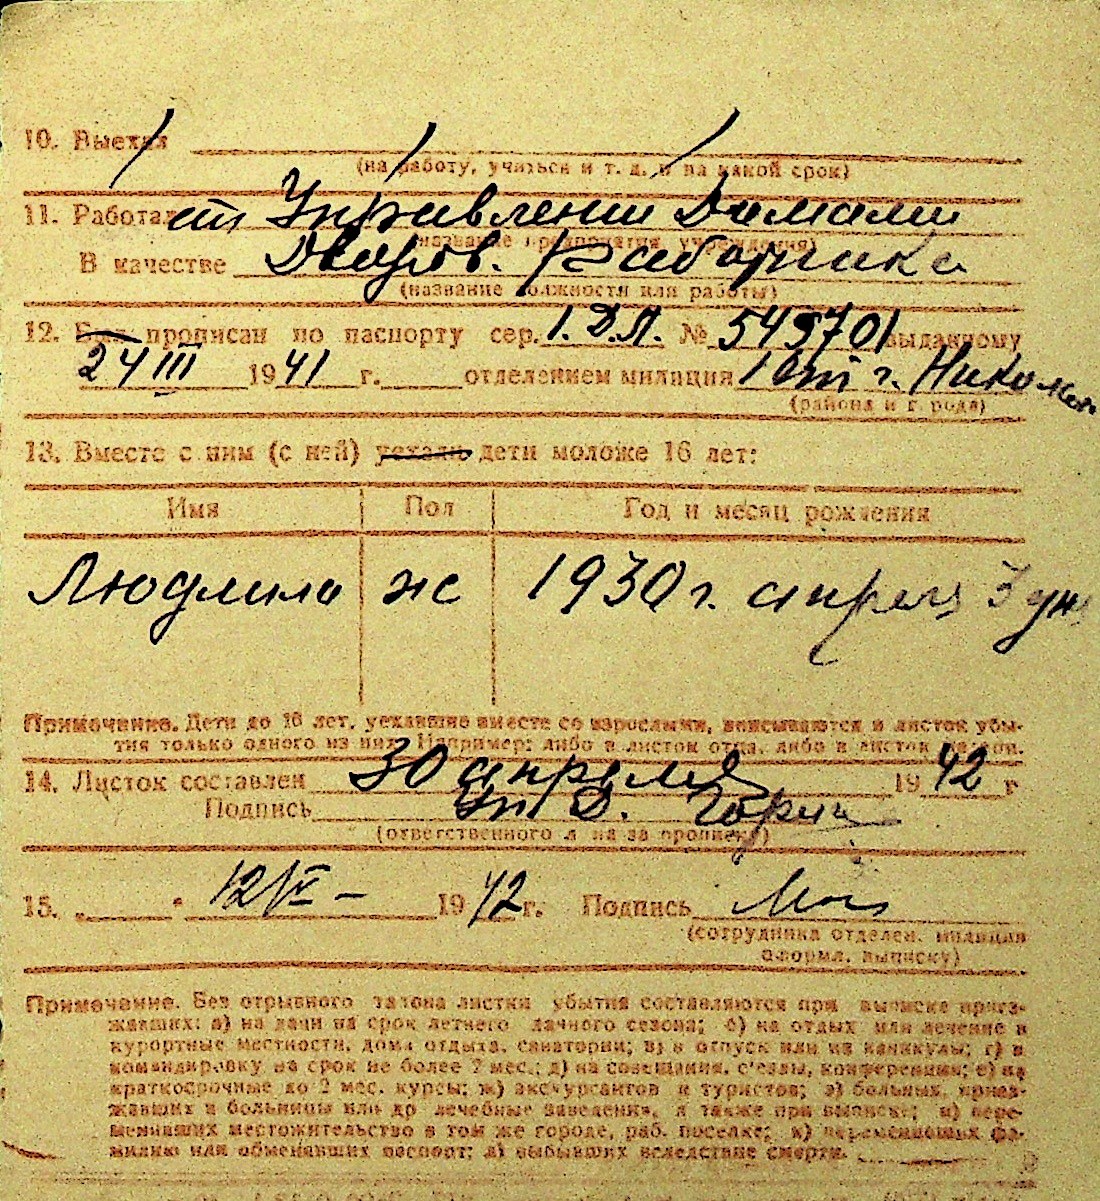 10. Выехал
(на работу, учиться и т. д. и на какой срок)
11. Работал Управлении Домами
(название предприятия, учреждения)
В качестве Дворов. Работника
(название должности или работы)
12. Был прописан по паспорту сер. 1. Д.Л. № 549701 выданному
24 III 1941 г. отделением милиции 1 от г.
(района и города)
13. Вместе с ним (с ней) уехали дети моложе 16 лет:
Имя Пол Год и месяц рождения
Людмила ж 1930 г. апреля 3 дня
Примечание. Дети до 16 лет, уехавшие вместе со взрослыми, вписываются в листок убы-
тия только одного из них. Например: либо в листок отца, либо в листок матери.
14. Листок составлен 30 апреля 1942 г
Подпись
(ответственного лица за прописку)
15. „ “ 12/VI – 1942 г. Подпись
(сотрудника отделен. милиции
оформл. выписку)
Примечание. Без отрывного талона листки убытия составляются при выписке приез-
жавших: а) на дачи на срок летнего дачного сезона; б) на отдых или лечение в
курортные местности, дома отдыха, санатории; в) в отпуск или на каникулы; г) в
командировку на срок не более 2 мес.; д) на совещания, с'езды, конференции; е) на
краткосрочные до 2 мес. курсы; ж) экскурсантов и туристов; з) больных, приез-
жавших в больницы или др лечебные заведения, а также при выписке; и) пере-
менивших местожительство в том же городе, раб. поселке; к) переменивших фа-
милию или обменявших паспорт; л) выбывших вследствие смерти.